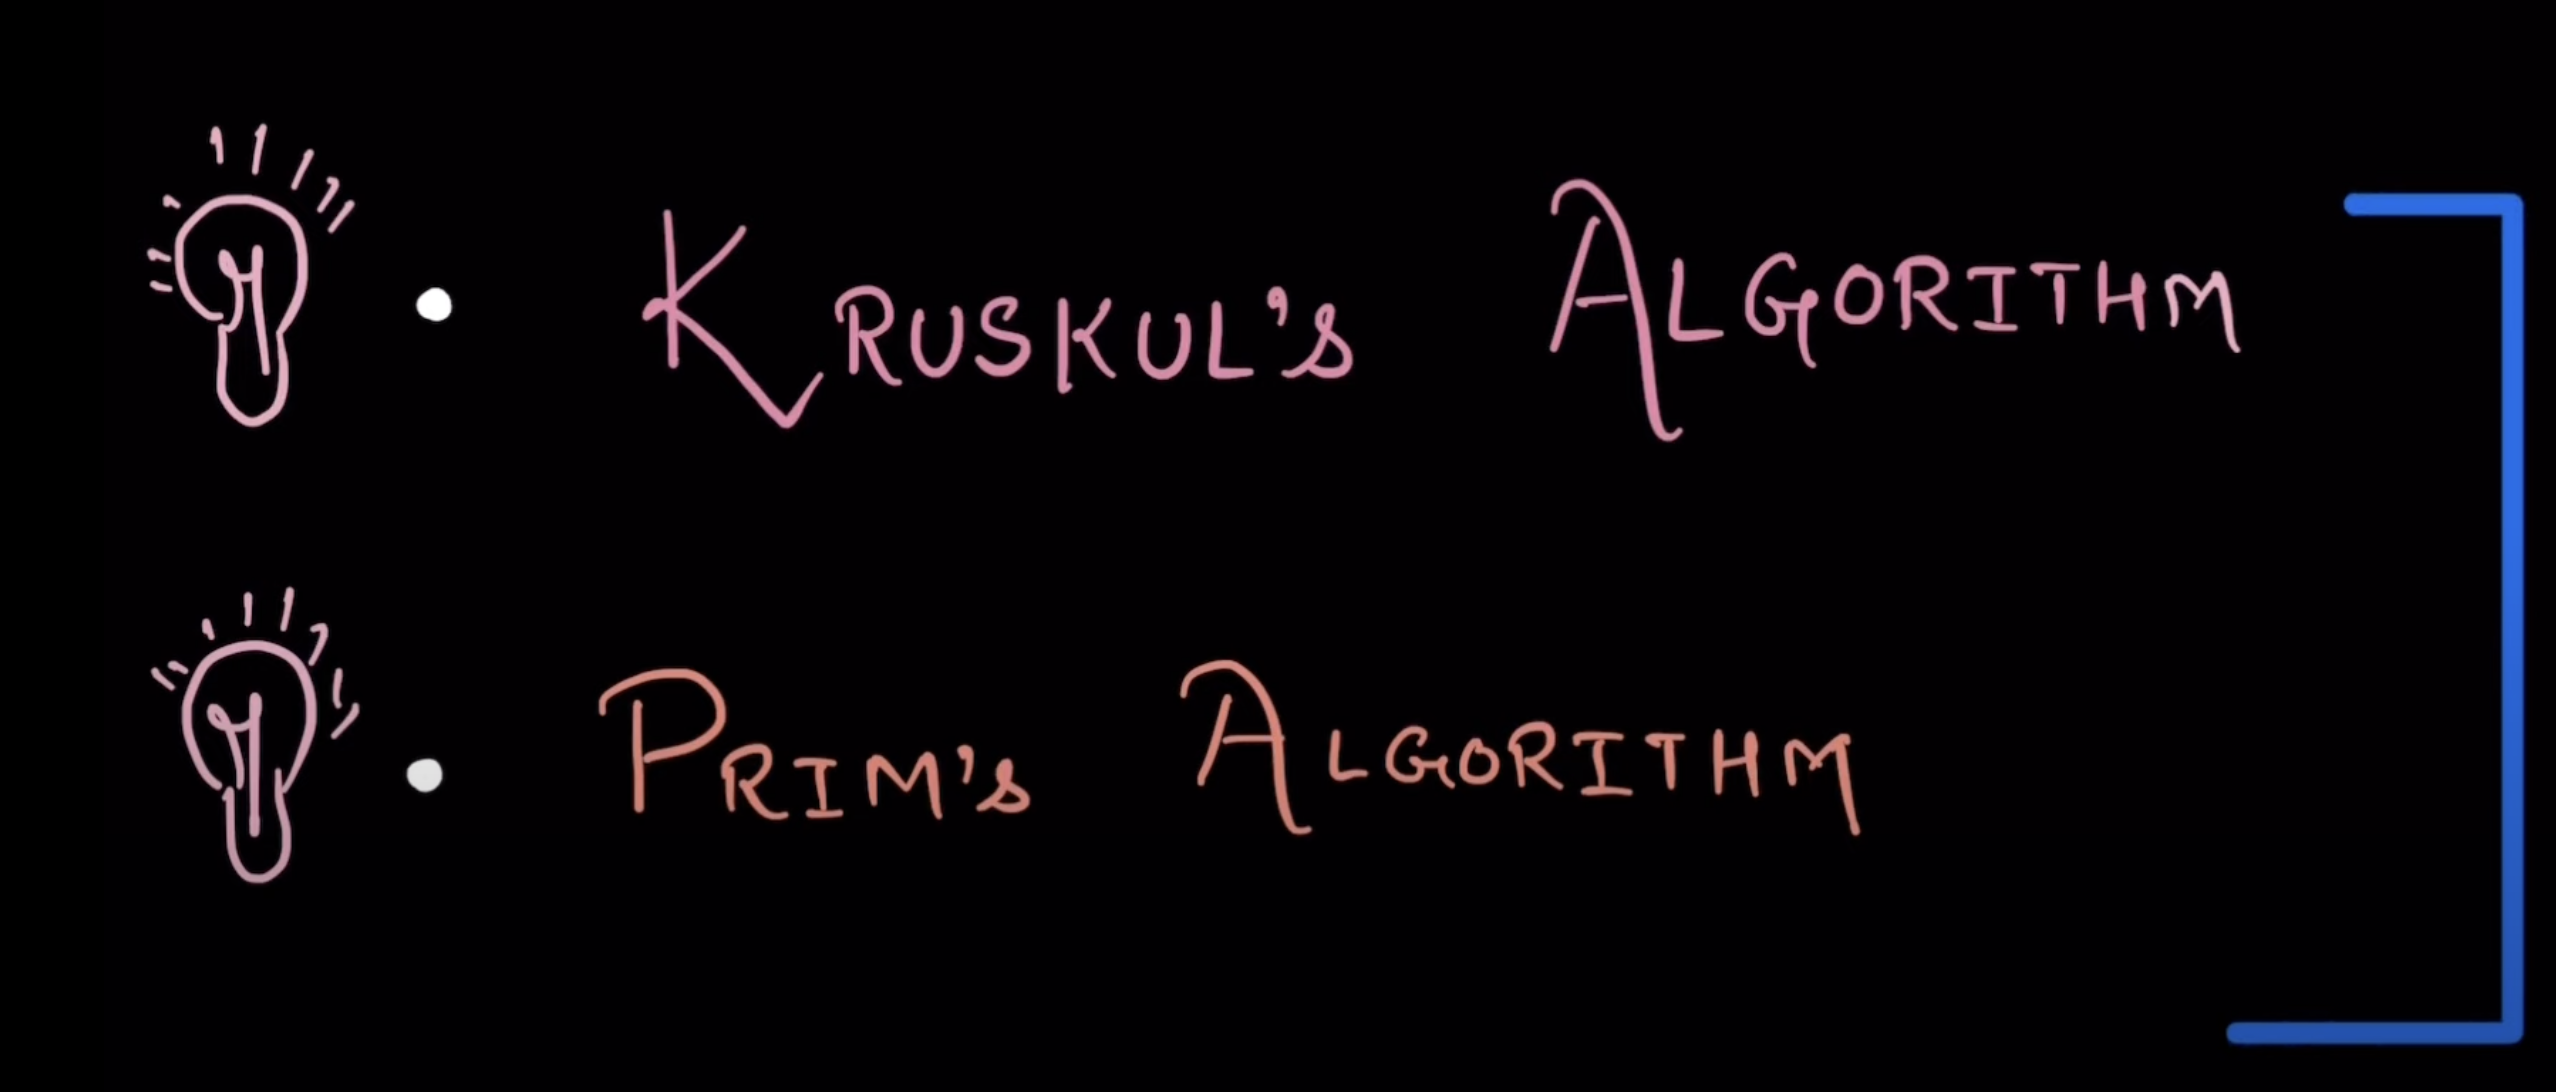 KRUSKUL'S ALGORITHM
PRIM'S ALGORITHM